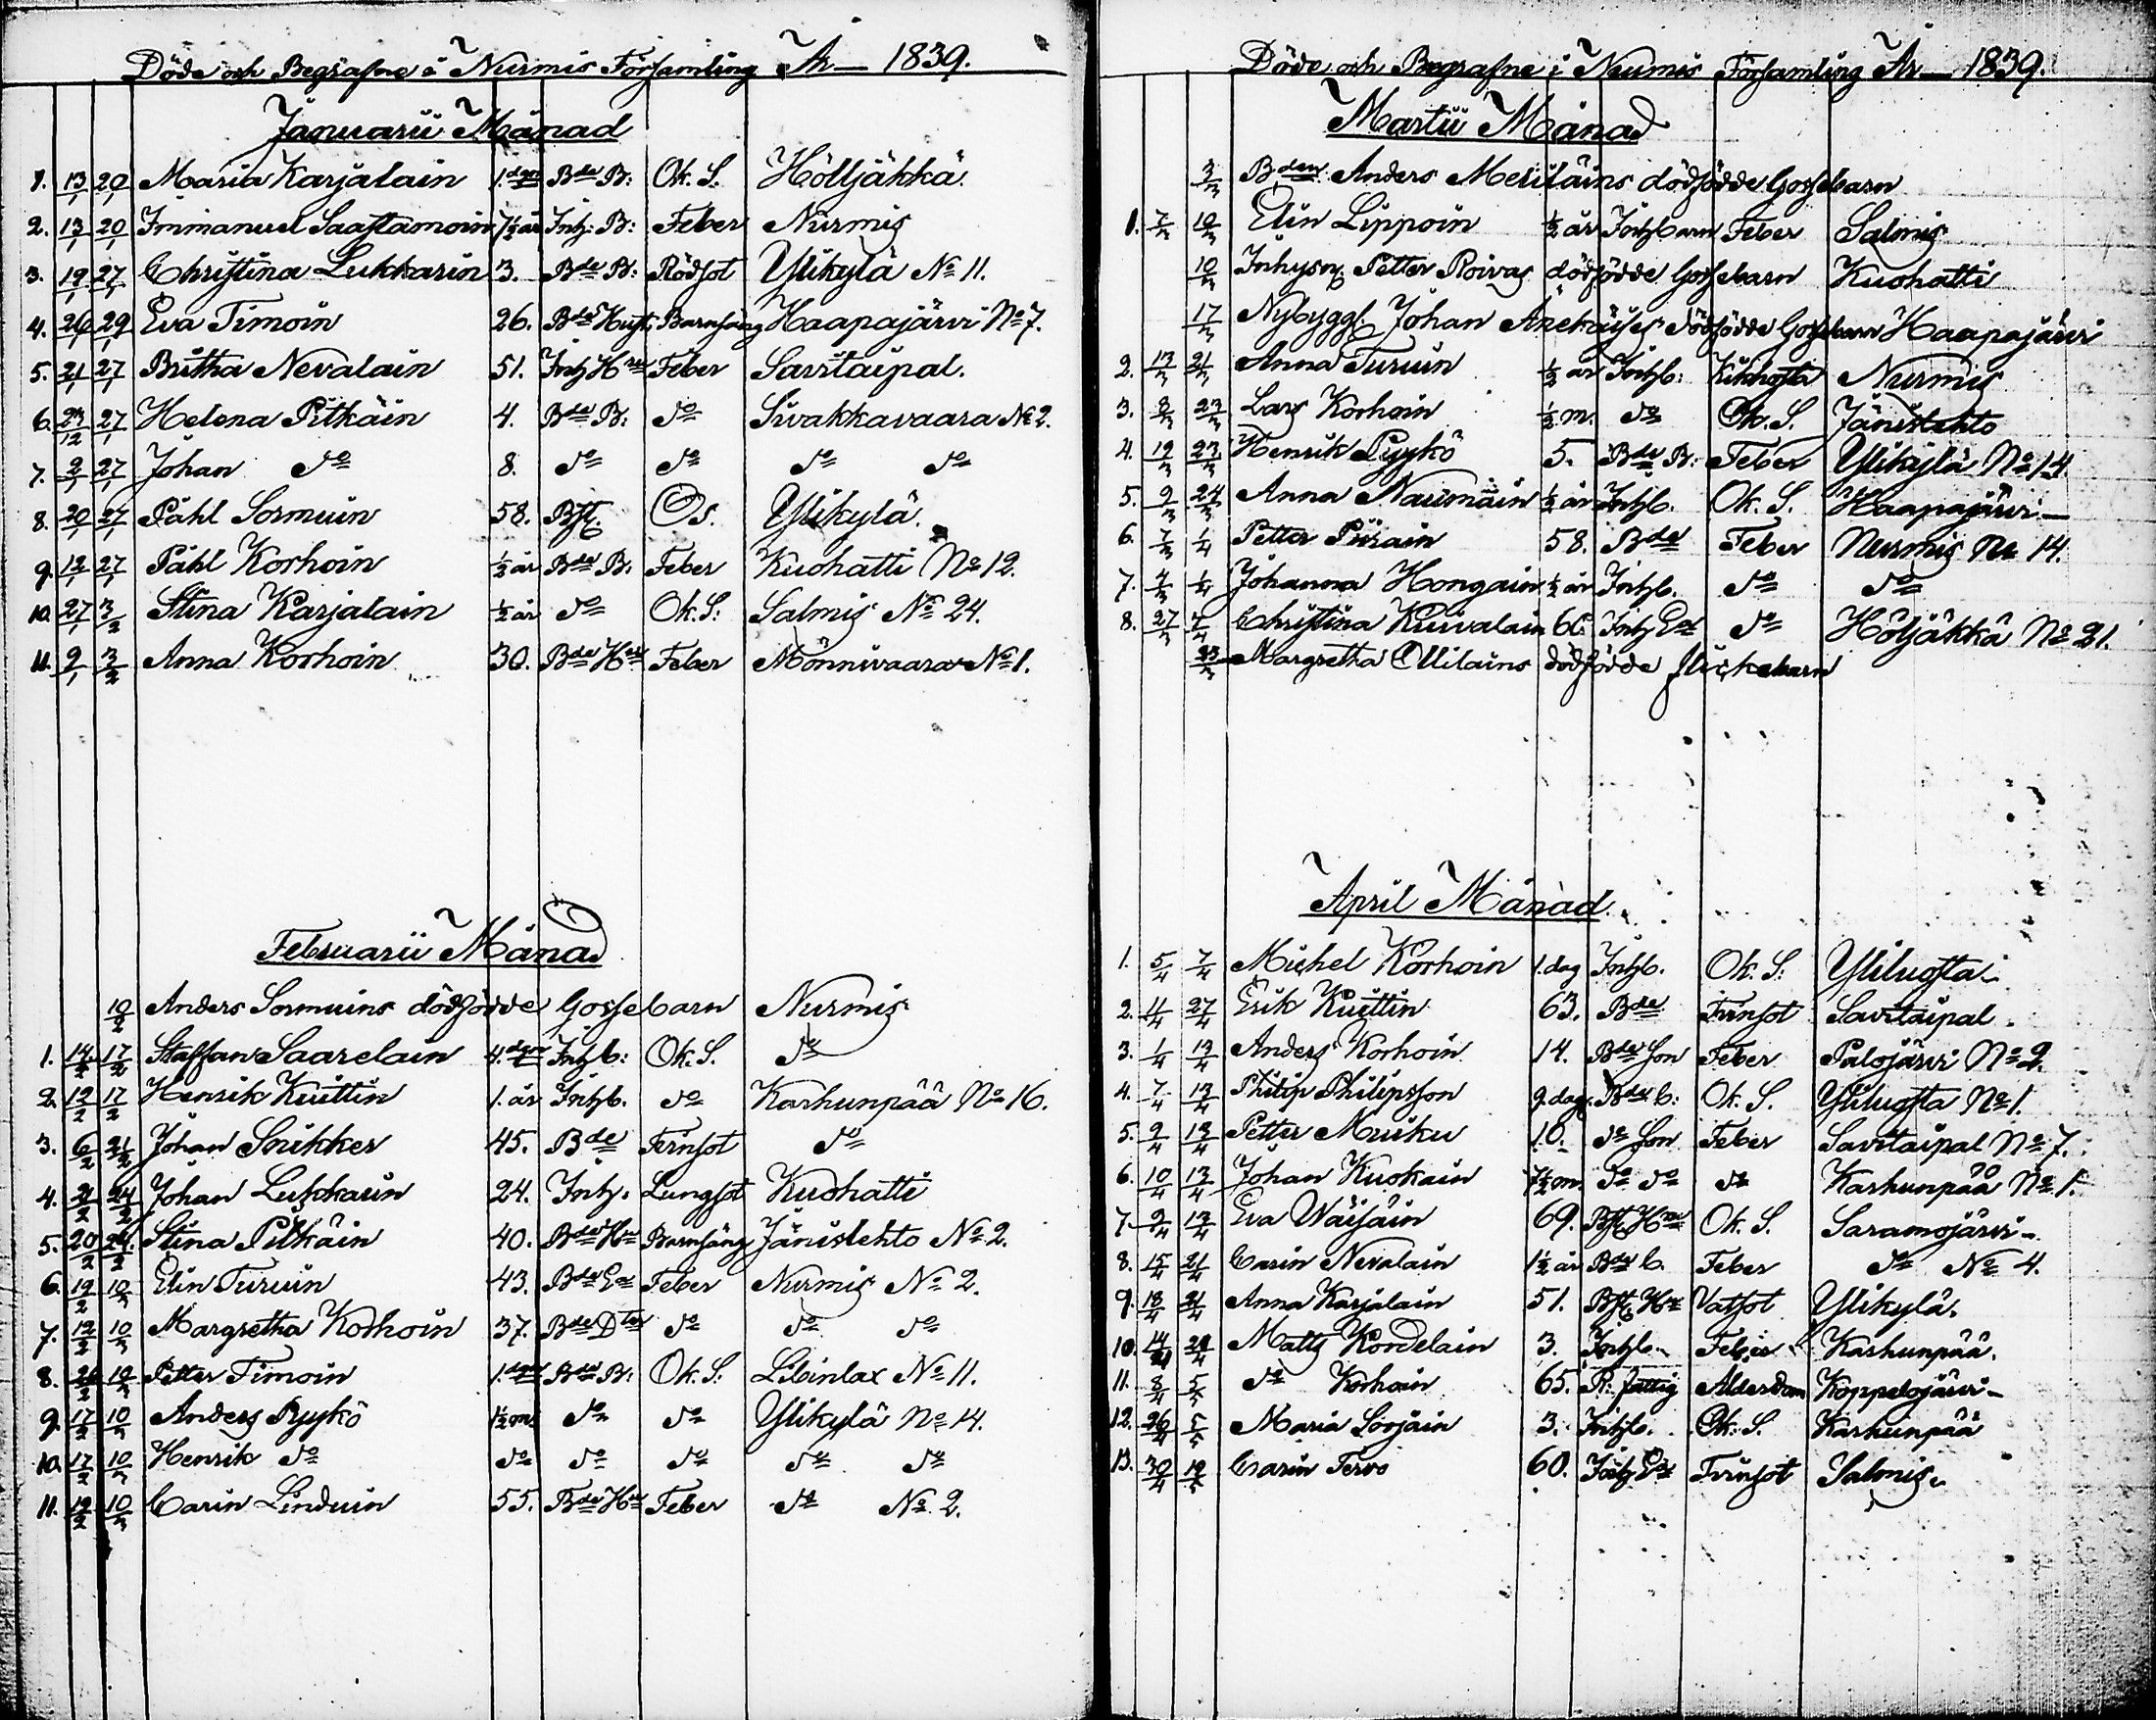 Döde och Begrafne i Nurmis Församling År — 1839.
Januarii Månad
1. 13/1 20/1 Maria Karjalain 1. dgr Bde B: Ok. S. Höljäkkä.
2. 13/1 20/1 Immanuel Saastamoin 7½ år Inh: B: Feber Nurmis
3. 19/1 27/1 Christina Lukkarin 3. Bde B: Rödsot Ylikylä No 11.
4. 26/1 29/1 Eva Timoin 26. Bde Hust: Barnsäng Haapajärvi No 7.
5. 21/1 27/1 Britha Nevalain 51. Inh Hru Feber Savitaipal.
6. 24/12 27/1 Helena Pitkäin 4. Bde B: do Sivakkavaara No 2.
7. 2/1 27/1 Johan do 8. do do do do
8. 20/1 27/1 Påhl Sormuin 58. Bst. Os. Ylikylä.
9. 12/1 27/1 Påhl Korhoin ½ år Bde B: Feber Kuohatti No 12.
10. 27/1 3/2 Stina Karjalain ½ år do Ok. S: Salmis No 24.
11. 9/1 3/2 Anna Korhoin 30. Bde Hru Feber Mönnivaara No 1.
Februarii Månad
10/2 Anders Sormuins dödfödde Gossebarn Nurmis
1. 14/2 17/2 Staffan Saarelain 4. dgr Inhb: Ok. S. do
2. 12/2 17/2 Henrik Kuittin 1. år Inhb. do Karhunpää No 16.
3. 6/2 21/2 Johan Snikker 45. Bde Tvinsot do
4. 21/2 24/2 Johan Lukkarin 24. Inh: Lungsot Kuohatti
5. 20/2 24/2 Stina Pitkäin 40. Bde Hru Barnsäng Jänislehto No 2.
6. 19/2 10/3 Elin Turuin 43. Bde Ea Feber Nurmis No 2.
7. 12/2 10/3 Margretha Korhoin 37. Bde Dter do do do
8. 26/2 10/3 Petter Timoin 1. dgr Bde B: Ok. S: Libinlax No 11.
9. 17/2 10/3 Anders Pyykö 1½ m. do do Ylikylä No 14.
10. 17/2 10/3 Henrik do do do do do do
11. 12/2 10/3 Carin Linduin 55. Bde Hru Feber do No 2.
Döde och Begrafne i Nurmis Församling År — 1839.
Martii Månad
3/3 Bden Anders Meriläins dödfödde Gossebarn
1. 7/3 10/3 Elin Lippoin ½ år Inhbarn Feber Salmis
10/3 Inhysn Petter Roivas dödfödde Gossebarn Kuohatti
17/3 Nybyggl Johan dödfödde Gossebarn Haapajärvi
2. 13/3 21/3 Anna Turuin ½ år Inhb: Kikhosta Nurmis
3. 8/3 23/3 Lars Korhoin ½ m. do Ok. S. Jänislehto
4. 19/3 23/3 Henrik Pyykö 5. Bde B: Feber Ylikylä No 14.
5. 9/3 24/3 Anna Naumain ½ år Inhb. Ok. S. Haapajärvi —
6. 7/3 1/4 Petter Piirain 58. Bde Feber Nurmis No 14.
7. 4/3 1/4 Johanna Hongain ½ år Inhb. do do
8. 27/3 7/4 Christina Kuivalain 66. Inh Ea do Höljäkkä No 21.
Margretha Ollilains dödfödde flickebarn
April Månad.
1. 5/4 7/4 Michel Korhoin 1. dag Inhb. Ok. S: Yliluosta
2. 11/4 27/4 Erik Kuittin 63. Bde Tvinsot Savitaipal.
3. 1/4 13/4 Anders Korhoin 14. Bde Son Feber Palojärvi No 2.
4. 7/4 13/4 Philip Philipsson 9. dag. Bde b: Ok. S. Yliluosta No 1.
5. 9/4 13/4 Petter Mursku 10. do Son Feber Savitaipal No 7.
6. 10/4 13/4 Johan Kuokain 7½ m do do do Karhunpää No 1.
7. 9/4 13/4 Eva Wäisäin 69. Bst Hru Ok. S. Saramojärvi —
8. 15/4 21/4 Carin Nevalain 1½ år Bde b. Feber do No 4.
9. 18/4 21/4 Anna Karjalain 51. Bst Hru Vatsot Ylikylä.
10. 14/4 21/4 Matts Kordelain 3. Inhb. Feber Karhunpää.
11. 8/4 5/5 do Korhoin 65. R: fattig Ålderdom Koppelojärvi —
12. 26/4 5/5 Maria Sorjain 3. Inhb. Ok. S. Karhunpää
13. 30/4 12/5 Carin Tervo 60. Inh Ea Tvinsot Salmis.